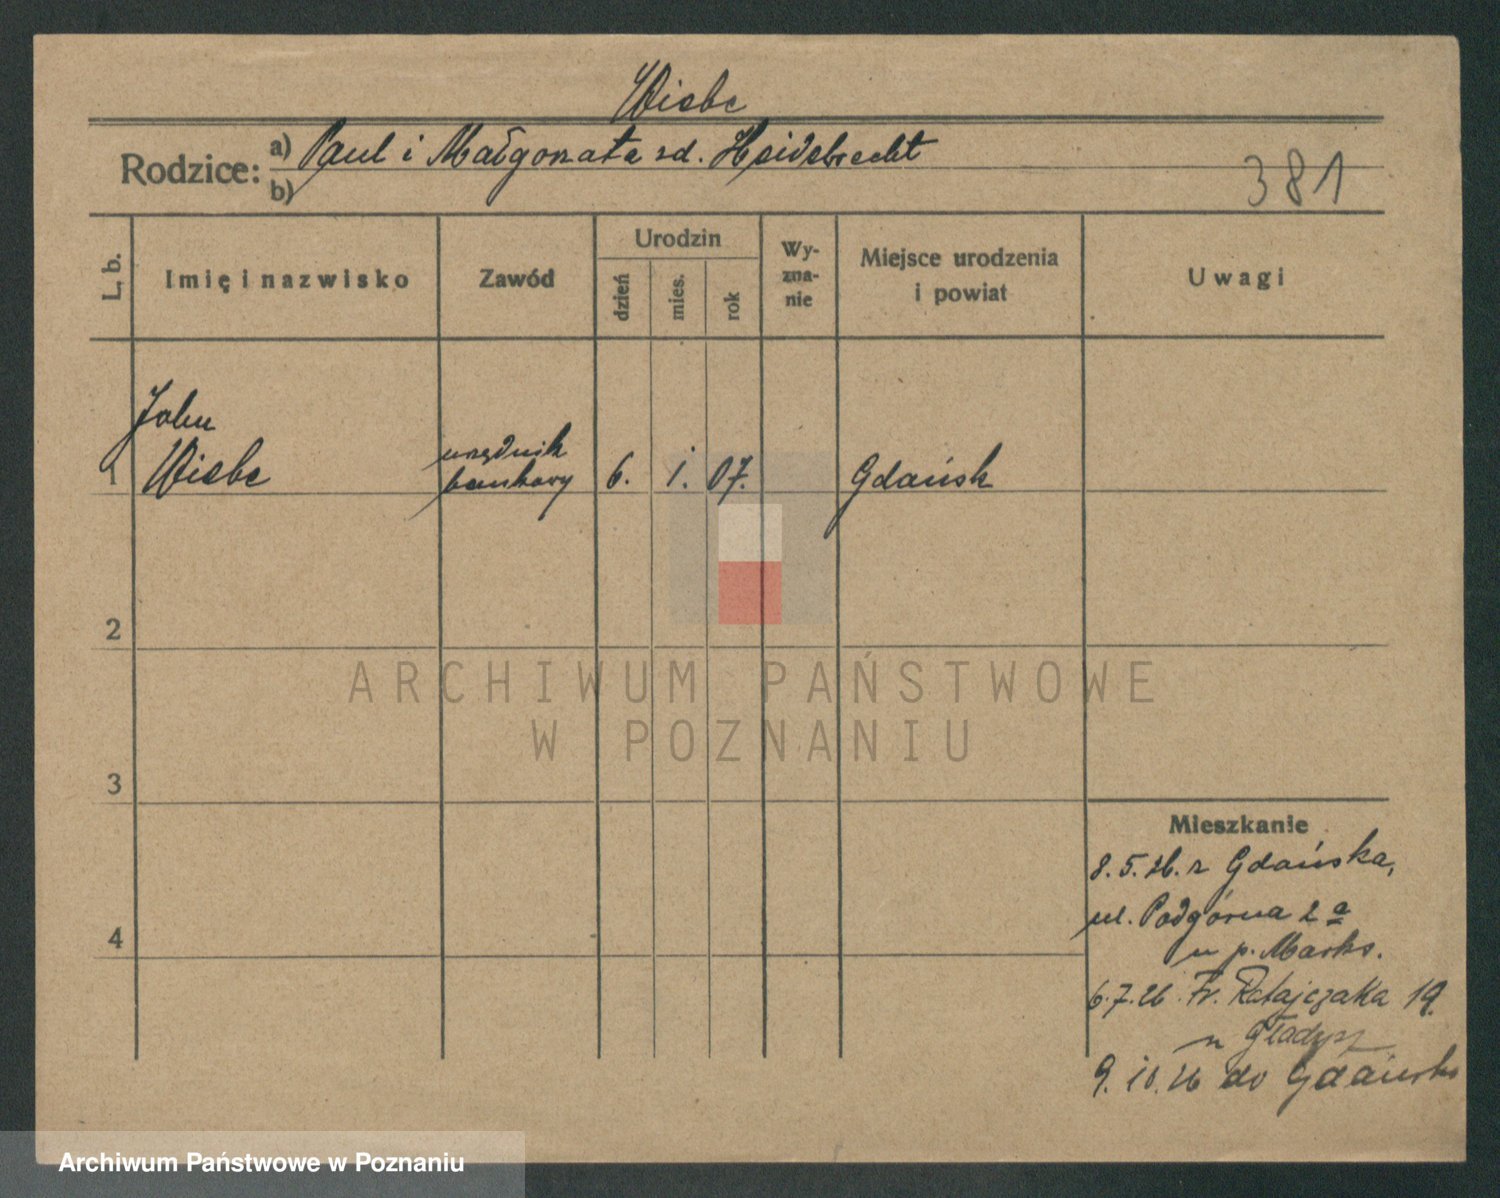 Wiebe
Rodzice: a) Paul i Małgorzata zd. Heidebrecht
b)
381
L. b.
Imię i nazwisko
Zawód
Urodzin
dzień
mies.
rok
Wy-
zna-
nie
Miejsce urodzenia
i powiat
Uwagi
John
1 Wiebe
urzędnik
bankowy
6. 1. 07.
Gdańsk
2
ARCHIWUM PAŃSTWOWE
W POZNANIU
3
4
Mieszkanie
8.5.26. z Gdańska,
ul. Podgórna 2a
u p. Marks.
6.7.26. Fr. Ratajczaka 19.
u Gładysz
9.10.26 do Gdańska
Archiwum Państwowe w Poznaniu